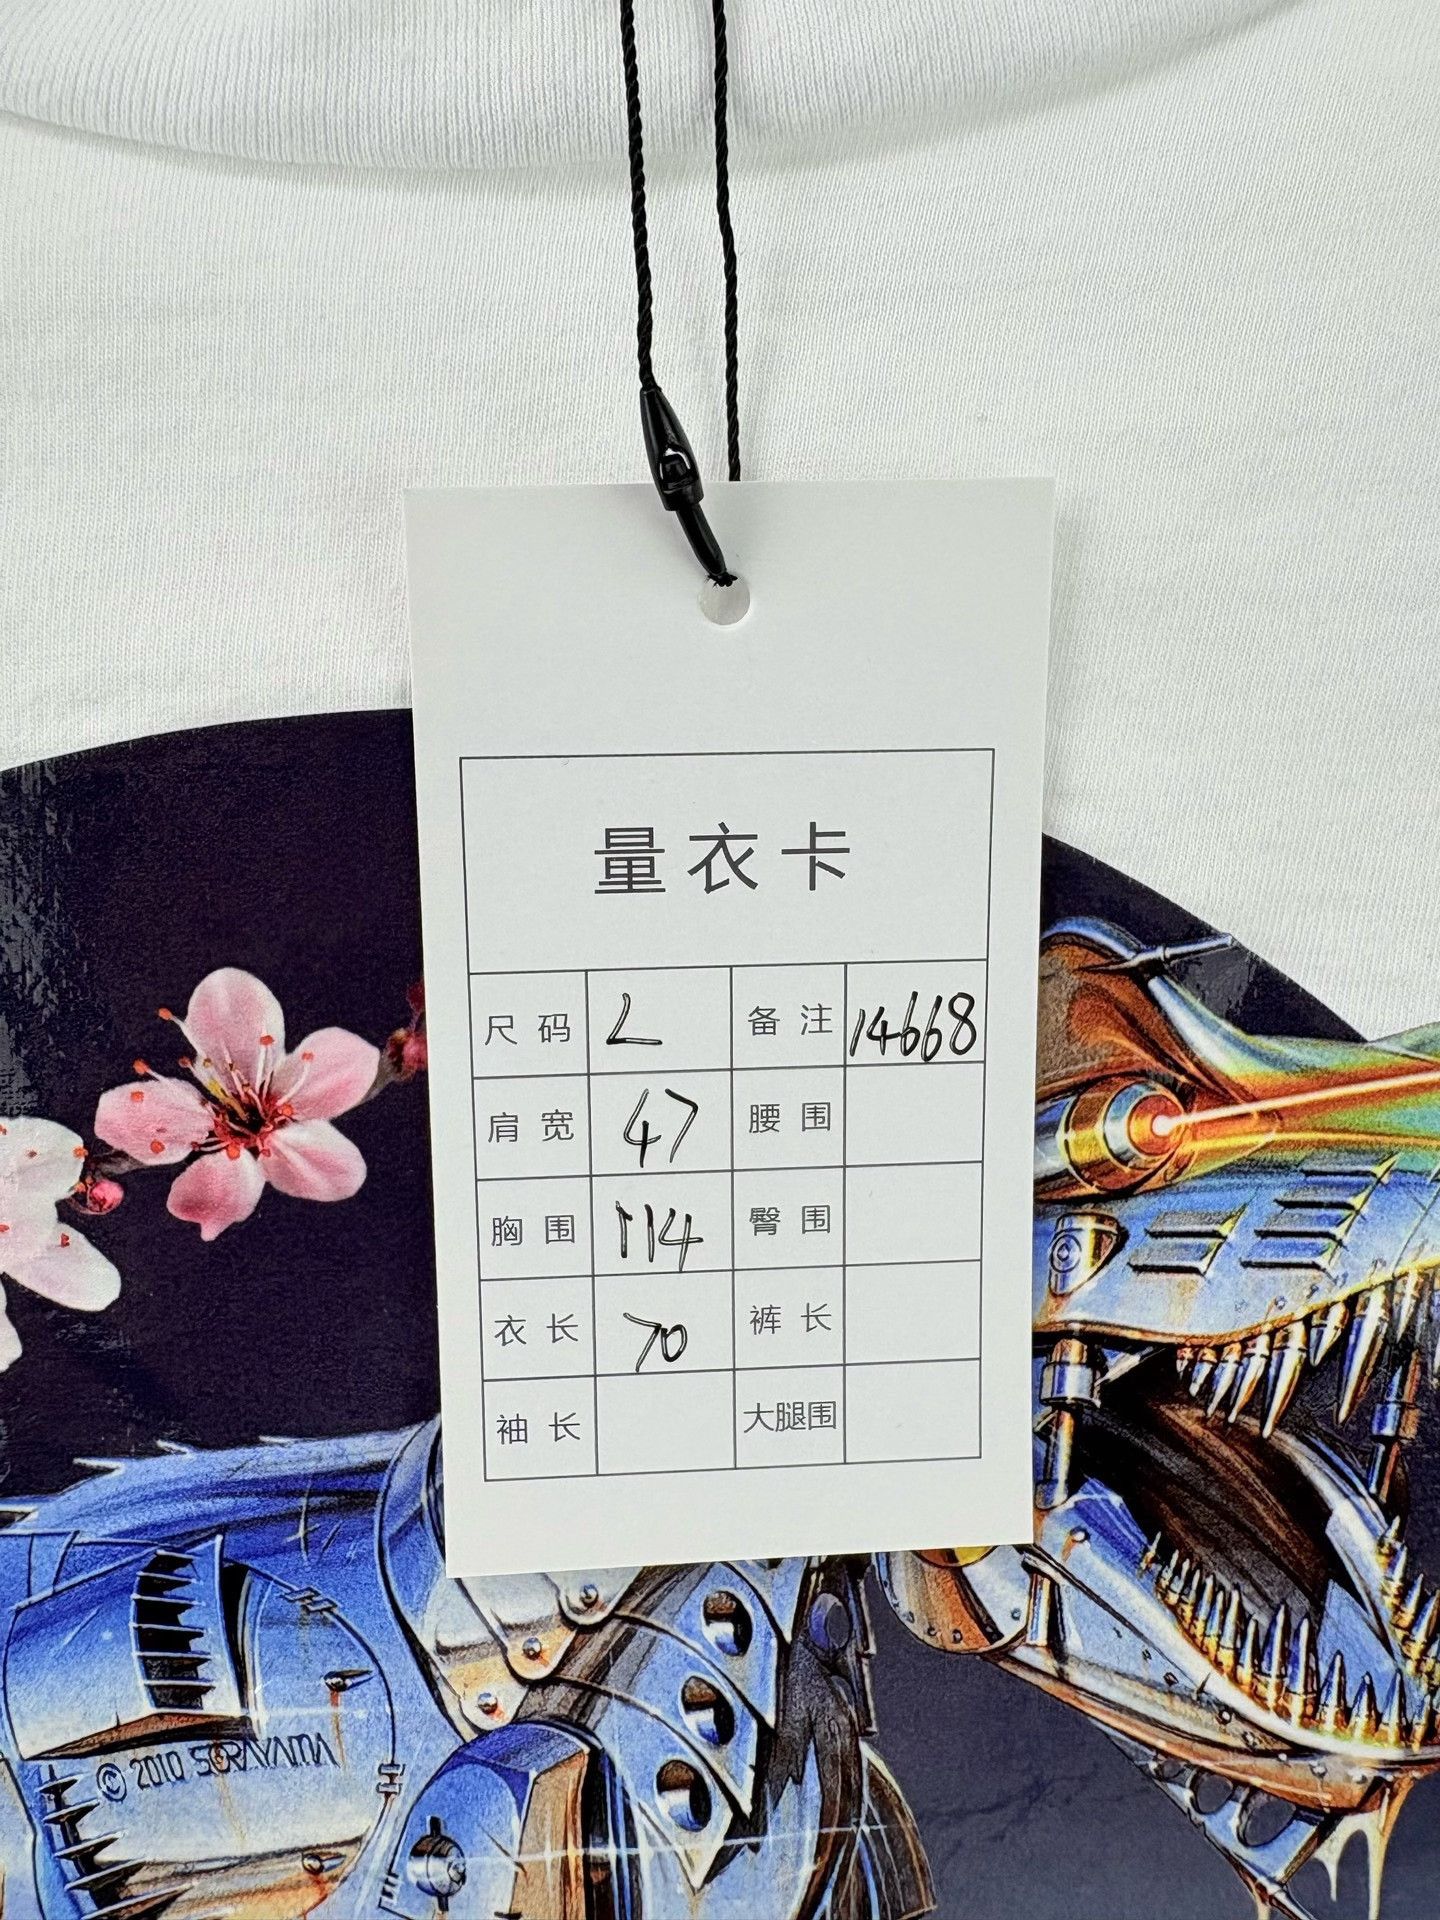 量衣卡
尺码 L 备注 14668
肩宽 47 腰围
胸围 114 臀围
衣长 70 裤长
袖长 大腿围
© 2010 SORAYAMA